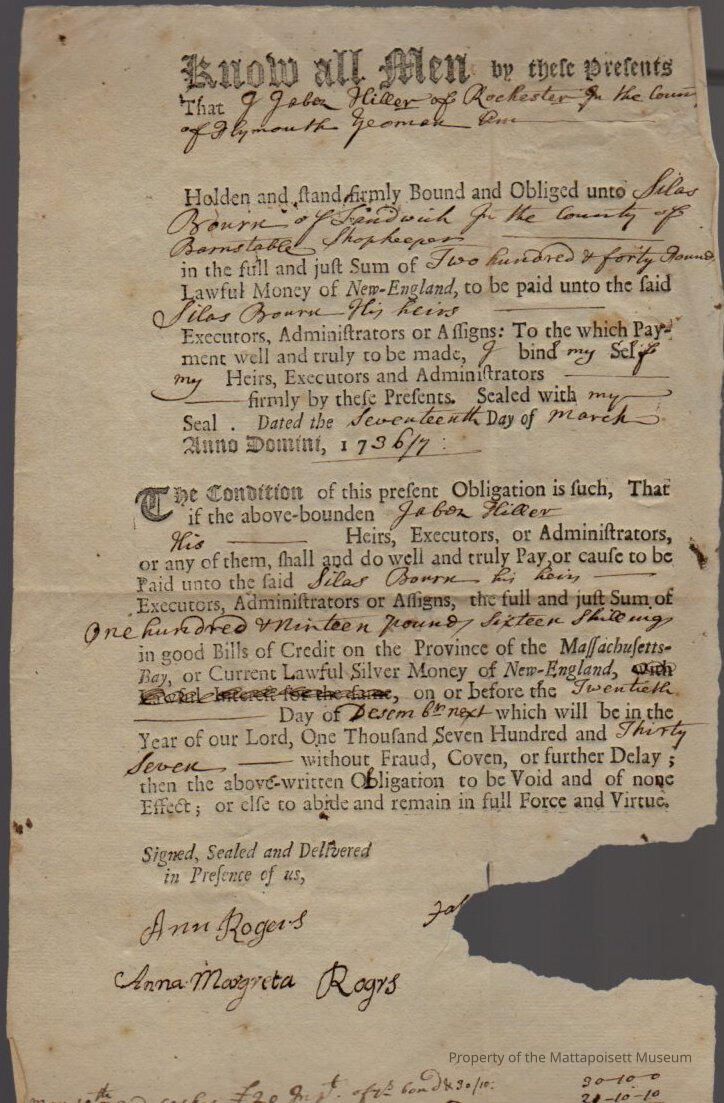 Know all Men by theſe Preſents
That I Jabez Hiller of Rochester In the Coun
of Plymouth Yeoman Am
Holden and ſtand firmly Bound and Obliged unto Silas
Bourn of Sandwich In the County of
Barnstable Shopkeeper
in the full and juſt Sum of Two hundred & forty Pound
Lawful Money of New-England, to be paid unto the ſaid
Silas Bourn His heirs
Executors, Adminiſtrators or Aſſigns: To the which Pay-
ment well and truly to be made, I bind my Self
my Heirs, Executors and Adminiſtrators
firmly by theſe Preſents. Sealed with my
Seal . Dated the Seventeenth Day of March
Anno Domini, 1736/7 :
The Condition of this preſent Obligation is ſuch, That
if the above-bounden Jabez Hiller
His Heirs, Executors, or Adminiſtrators,
or any of them, ſhall and do well and truly Pay, or cauſe to be
Paid unto the ſaid Silas Bourn his heirs
Executors, Adminiſtrators or Aſſigns, the full and juſt Sum of
One hundred & Ninteen pounds Sixteen Shillings
in good Bills of Credit on the Province of the Maſſachuſetts-
Bay, or Current Lawful Silver Money of New-England, with
Lawful Intereſt for the ſame, on or before the Twentieth
Day of Desembr next which will be in the
Year of our Lord, One Thouſand Seven Hundred and Thirty
Seven without Fraud, Coven, or further Delay ;
then the above-written Obligation to be Void and of none
Effect ; or elſe to abide and remain in full Force and Virtue.
Signed, Sealed and Delivered
in Preſence of us,
Ann Rogers Jab
Anna Margreta Rogrs
Property of the Mattapoisett Museum
of ys bond & 30/10: 30-10-0
21-10-10